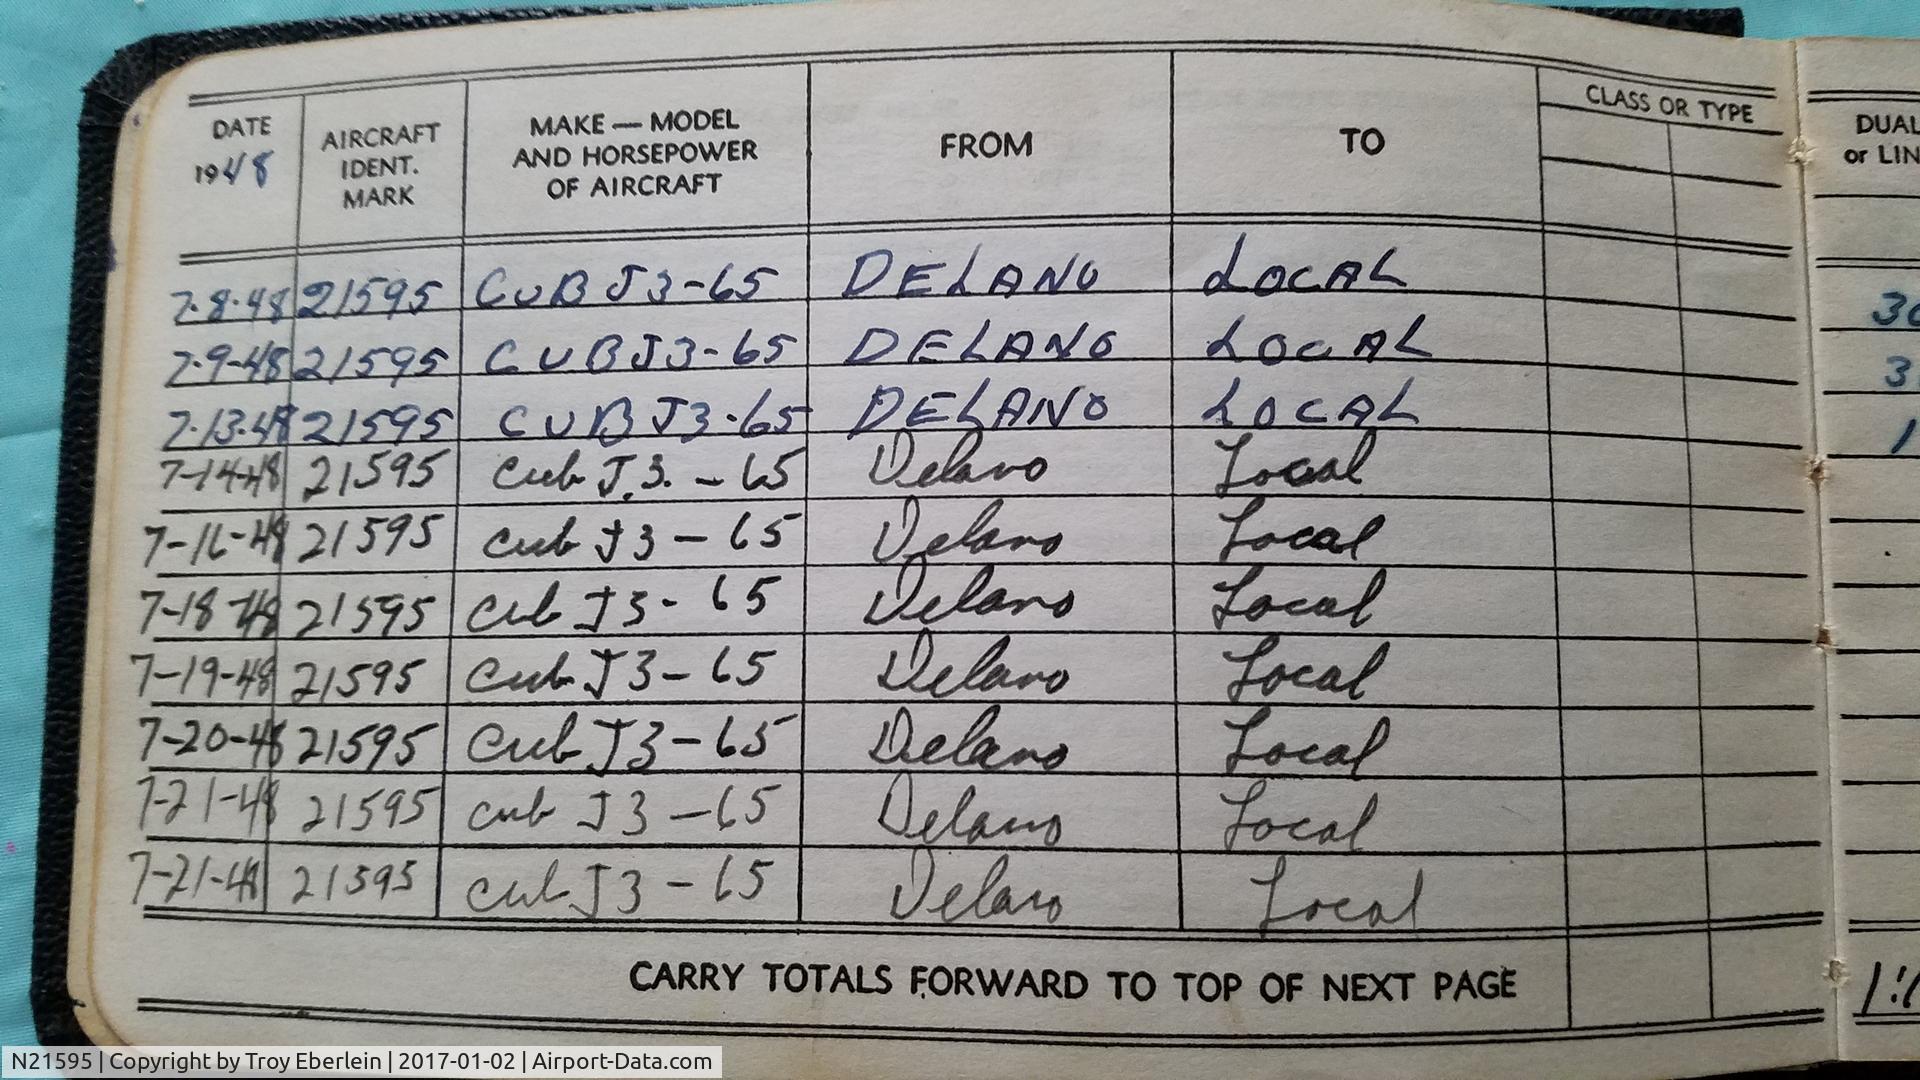 CLASS OR TYPE
DATE AIRCRAFT MAKE — MODEL FROM TO DUAL
1948 IDENT. AND HORSEPOWER or LIN
MARK OF AIRCRAFT
7-8-48 21595 CUB J3-65 DELANO LOCAL 30
7-9-48 21595 CUB J3-65 DELANO LOCAL 3
7-13-48 21595 CUB J3-65 DELANO LOCAL 1
7-14-48 21595 Cub J.3. - 65 Delano Local
7-16-48 21595 Cub J3-65 Delano Local
7-18-48 21595 Cub J3-65 Delano Local
7-19-48 21595 Cub J3-65 Delano Local
7-20-48 21595 Cub J3-65 Delano Local
7-21-48 21595 Cub J3-65 Delano Local
7-21-48 21595 Cub J3-65 Delano Local
CARRY TOTALS FORWARD TO TOP OF NEXT PAGE
N21595 | Copyright by Troy Eberlein | 2017-01-02 | Airport-Data.com